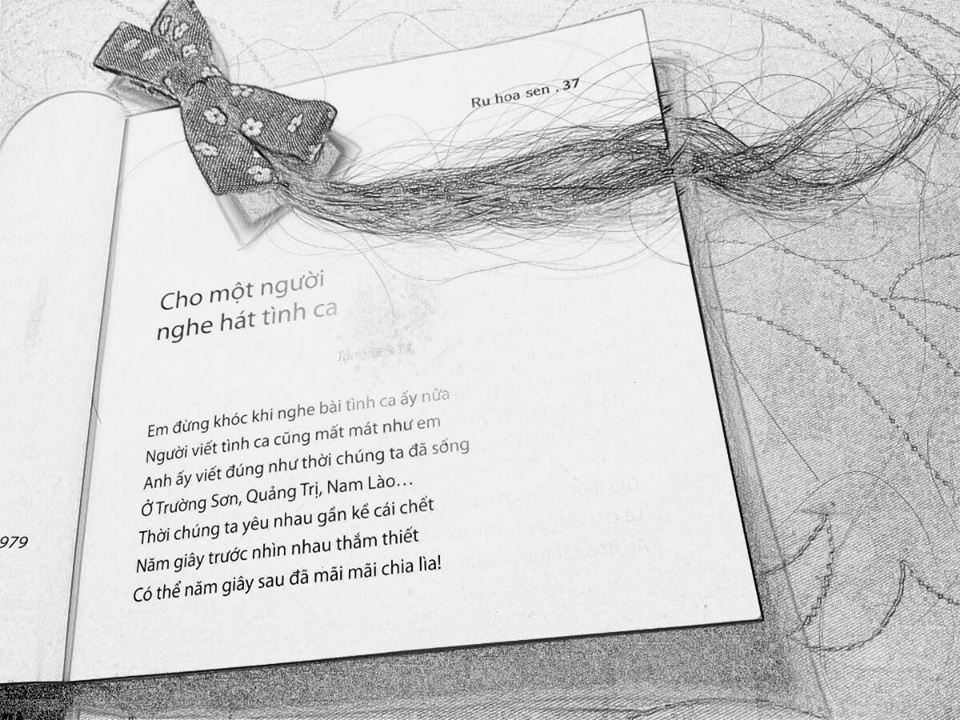 Ru hoa sen . 37
Cho một người
nghe hát tình ca
Em đừng khóc khi nghe bài tình ca ấy nữa
Người viết tình ca cũng mất mát như em
Anh ấy viết đúng như thời chúng ta đã sống
Ở Trường Sơn, Quảng Trị, Nam Lào...
Thời chúng ta yêu nhau gần kề cái chết
Năm giây trước nhìn nhau thắm thiết
Có thể năm giây sau đã mãi mãi chia lìa!
979